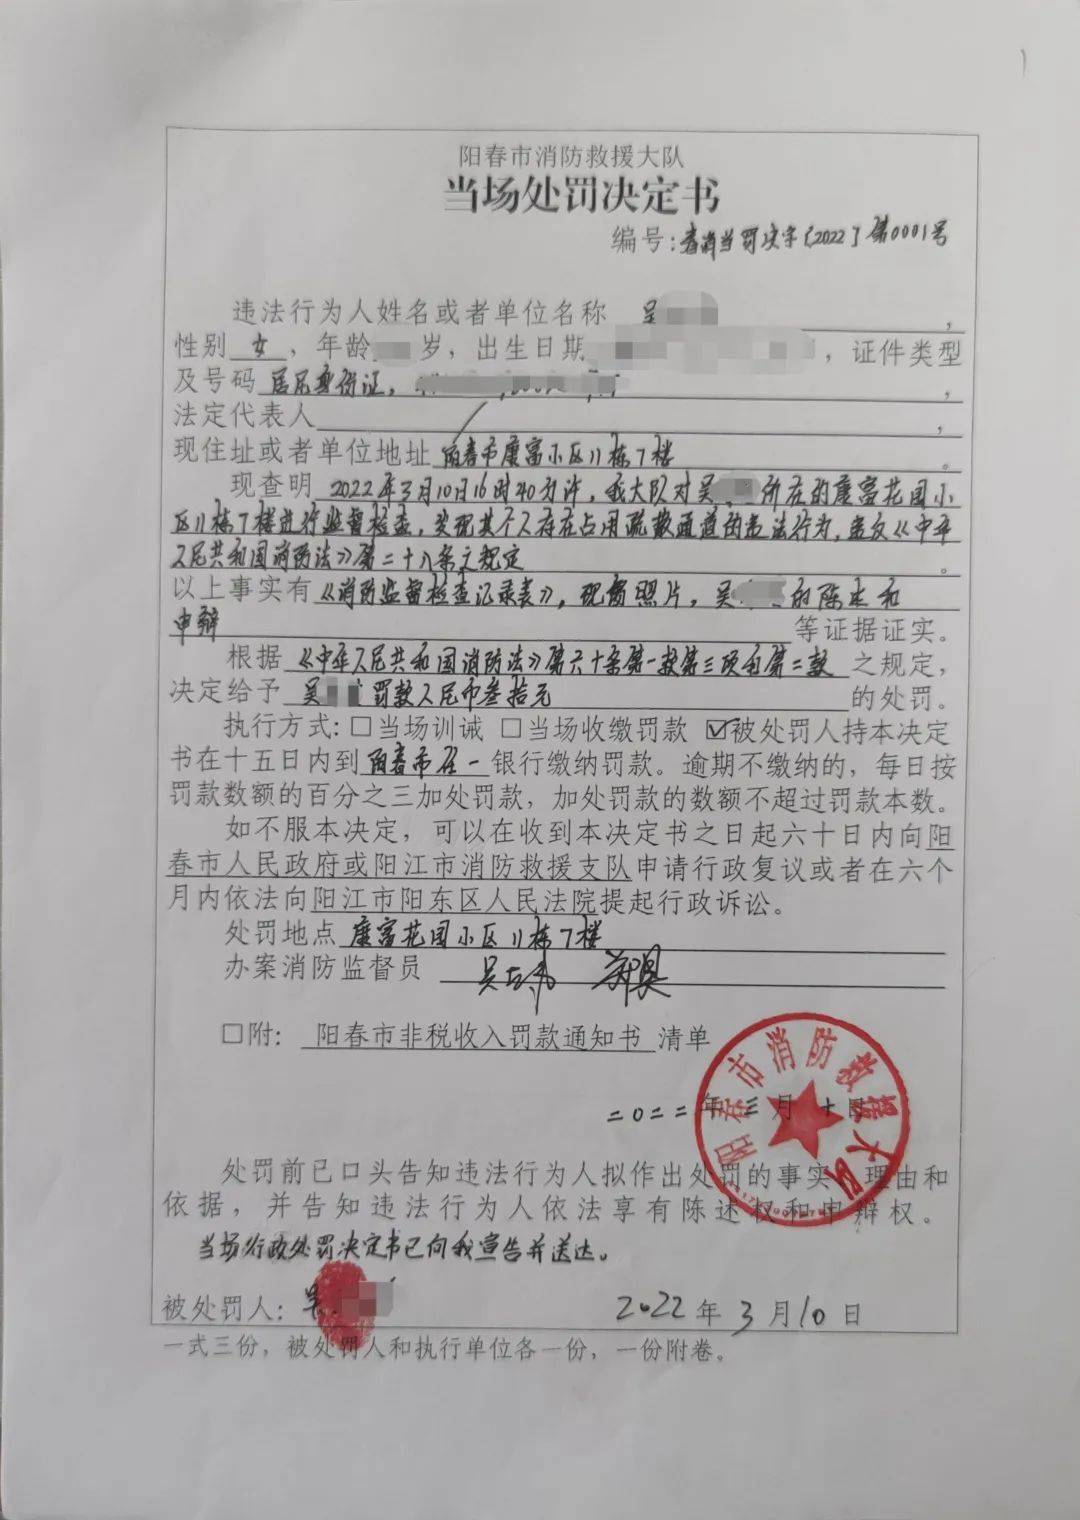 阳春市消防救援大队
当场处罚决定书
编号:春消当罚决字〔2022〕第0001号
违法行为人姓名或者单位名称 吴 ,
性别 女 ,年龄 岁,出生日期 ,证件类型
及号码 居民身份证, ,
法定代表人 ,
现住址或者单位地址 阳春市康富小区11栋7楼 。
现查明 2022年3月10日16时40分许,我大队对吴 所在的康富花园小
区11栋7楼进行监督检查,发现其个人存在占用疏散通道的违法行为,违反《中华
人民共和国消防法》第二十八条之规定 。
以上事实有《消防监督检查记录表》,现场照片,吴 的陈述和
申辩 等证据证实。
根据《中华人民共和国消防法》第六十条第一款第三项和第二款 之规定,
决定给予 吴 罚款人民币叁拾元 的处罚。
执行方式:☐当场训诫 ☐当场收缴罚款 ☑被处罚人持本决定
书在十五日内到 阳春市任一 银行缴纳罚款。逾期不缴纳的,每日按
罚款数额的百分之三加处罚款,加处罚款的数额不超过罚款本数。
如不服本决定,可以在收到本决定书之日起六十日内向阳
春市人民政府或阳江市消防救援支队申请行政复议或者在六个
月内依法向阳江市阳东区人民法院提起行政诉讼。
处罚地点 康富花园小区11栋7楼
办案消防监督员
☐附: 阳春市非税收入罚款通知书 清单
二〇二二年三月十日
阳春市消防救援大队
处罚前已口头告知违法行为人拟作出处罚的事实、理由和
依据,并告知违法行为人依法享有陈述权和申辩权。
当场行政处罚决定书已向我宣告并送达。
被处罚人:吴 2022年3月10日
一式三份,被处罚人和执行单位各一份,一份附卷。